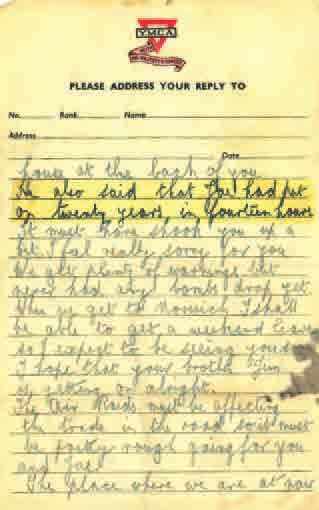 YMCA
PLEASE ADDRESS YOUR REPLY TO
No. Rank Name
Address
Date
house at the back of you
He also said that Joe had put
on twenty years, in fourteen hours
It must have shook you up a
bit. I feel really sorry for you
We get plenty of warnings but
never had any bombs drop yet.
When we get to Norwich I shall
be able to get a weekend leave
so I expect to be seeing you
I hope that your brother Jim
is getting on alright.
The Air Raids must be affecting
the trade in the road so it must
be pretty rough going for you
and Joe.
The place where we are at now